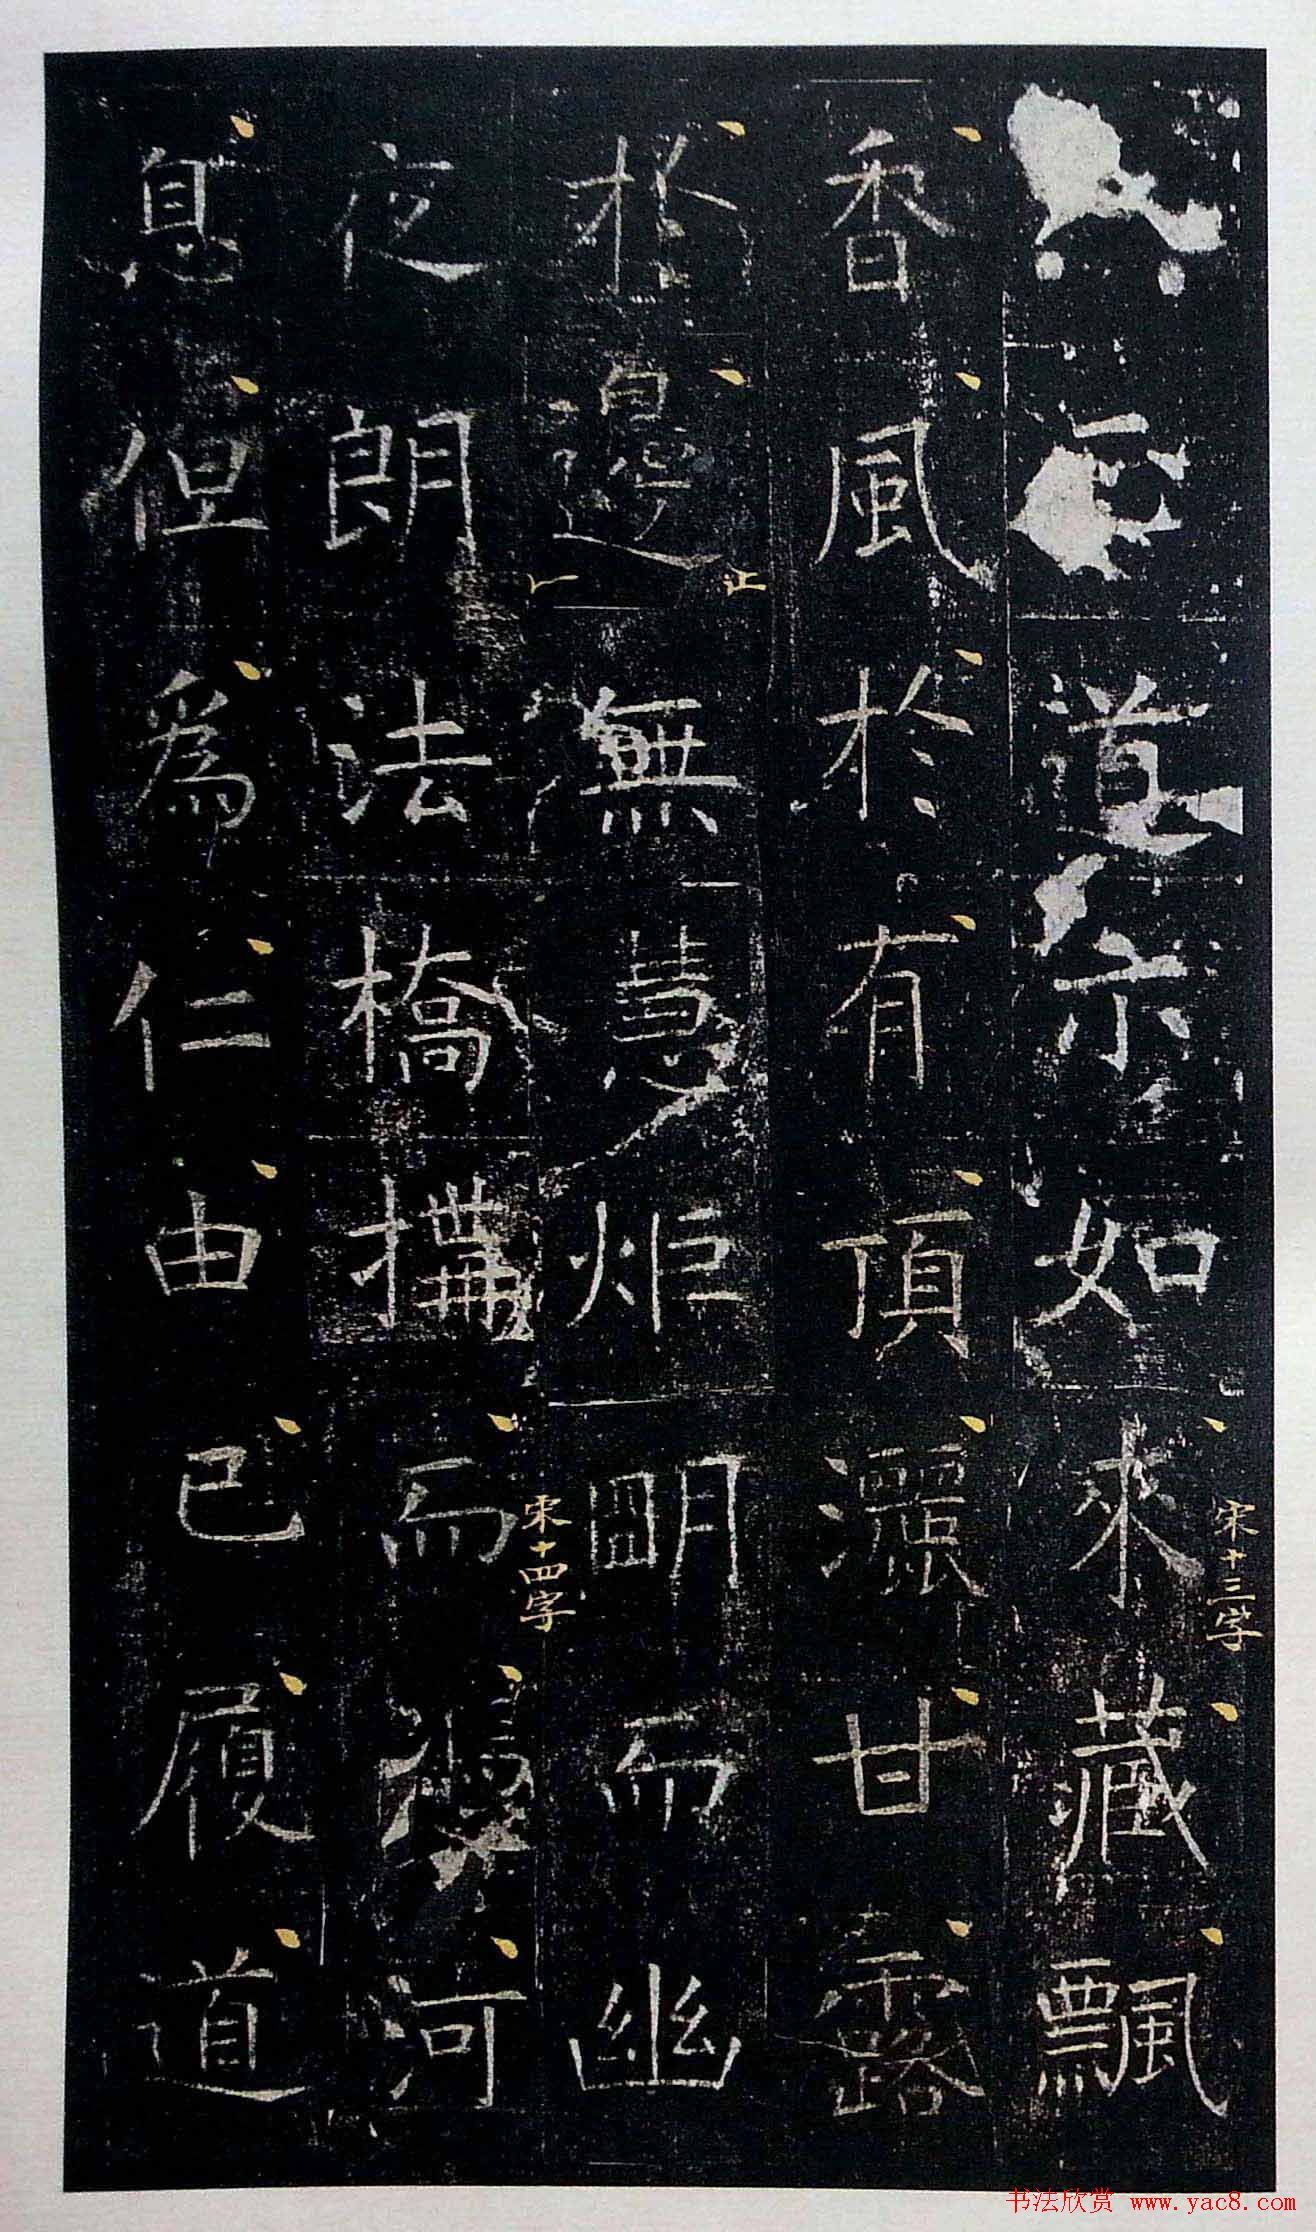 道示如來藏飄
香風於有頂灑甘露
於邊無慧炬明而幽
夜朗法橋構而漫河
息但為仁由已履道
宋十三字
宋十四字
书法欣赏 www.yac8.com